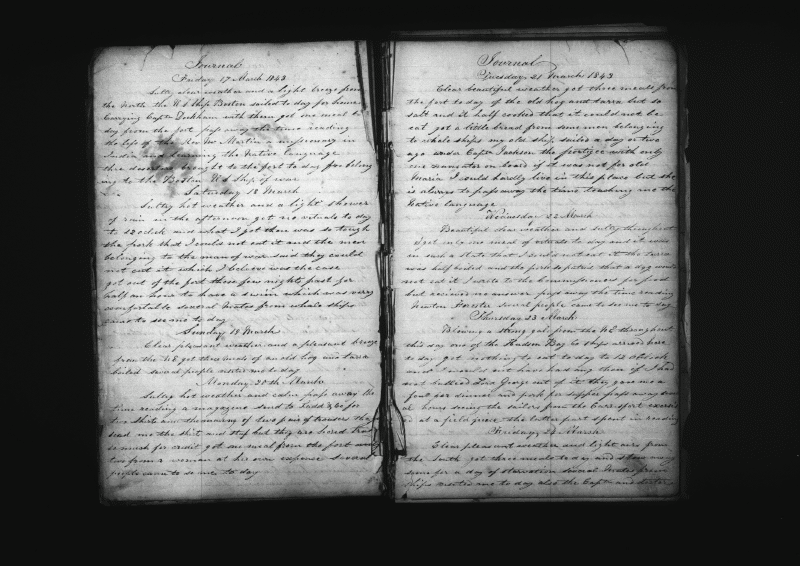 Journal
Friday 17 March 1843
Sulty clear weather and a light breeze from
the North the U S Ship Boston sailed to day for home
Carrying Captn Dunham with them got one meal to
day from the fort pass away the time reading
the life of the Rev Mr Martin a missionary in
India and learning the Native language
three deserters brought to the fort to day for belong
ing to the Boston U S Ship of war
Saturday 18 March
Sultry hot weather and a light shower
of rain in the afternoon got no vituals to day
to 12 oclock and what I got then was so tough
the pork that I could not eat it and the men
belonging to the man of war said they could
not eat it which I believe was the case
got out of the fort these few nights past for
half an hour to have a swim which was very
comfortable several mates from whale ships
came to see me to day
Sunday 19 March
Clear pleasant weather and a pleasant breeze
from the NE got three meals of an old hog and tarra
boiled several people visited me to day
Monday 20th March
Sultry hot weather and calm pass away the
time reading a magazine send to Ladd & Co for
two shirts and the making of two pair of trousers they
send me the shirt and stuf but they are
so much for credit got one meal from the fort and
two from a woman at his own expense several
people came to see me to day
Journal
Tuesday 21 March 1843
Clear beautiful weather got three meals from
the fort to day of the old hog and tarra but so
salt and it half cooked that it could not be
eat got a little bread from some men belonging
to whale ships my old ship sailes a day or two
ago under Captn Jackson the with only
one on board if it was not for old
Maria I could hardly live in this place but she
is always to pass away the time teaching me the
Native language
Wednesday 22 March
Beautiful clear weather and sultry throughout
I got only one meal of vituals to day and it was
in such a state that I could not eat it the tarra
was half boiled and the pork so putrid that a dog would
not eat it I wrote to the Commissioners for food
but recieved no answer pass away the time reading
Newton Forester several people came to see me to day
Thursday 23 March
Blowing a strong gale from the NE throughout
this day one of the Hudson Bay Co ships arrived here
to day got nothing to eat to day to 12 O'Clock
and I would not have had any then if I had
not King George out of it they gave me a
fowl for dinner and pork for supper pass away several
hours seeing the sailors from the Carrysfort exercised
at a field piece the latter part spent in reading
Friday 24 March
Clear pleasant weather and light airs from
the South got three meals to day and
for a day of starvation several Mates from
ships visited me to day also the Captn and doctor